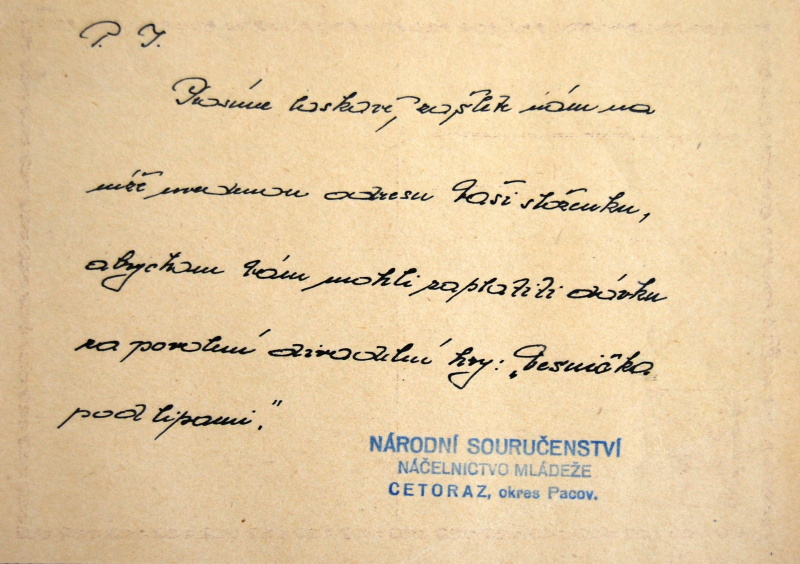 P. T.
Prosíme laskavě, zašlete nám na
níže uvedenou adresu Vaši složenku,
abychom Vám mohli zaplatiti dávku
za povolení divadelní hry: „Vesnička
pod lipami."
NÁRODNÍ SOURUČENSTVÍ
NÁČELNICTVO MLÁDEŽE
CETORAZ, okres Pacov.